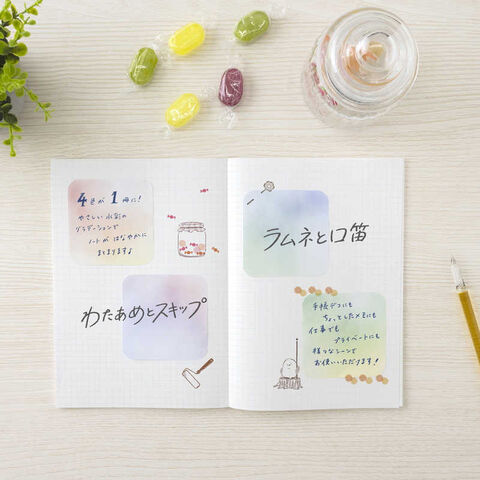 4色が1冊に!
やさしい水彩の
グラデーションで
ノートがはなやかに
まとまります♪
わたあめとスキップ
ラムネと口笛
手帳デコにも
ちょっとしたメモにも
仕事でも
プライベートにも
様々なシーンで
お使いいただけます!